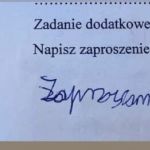 Zadanie dodatkowe
Napisz zaproszenie